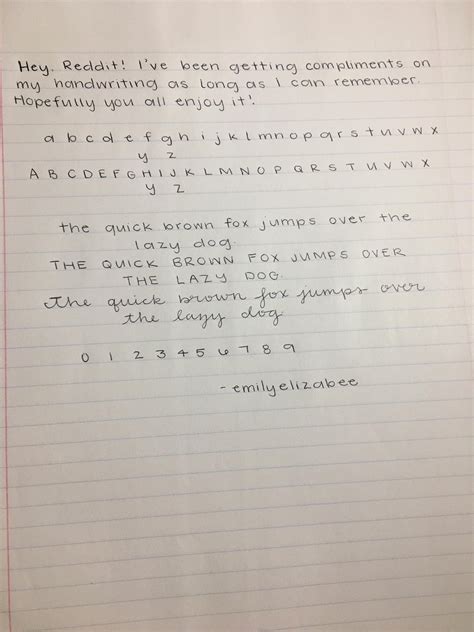 Hey, Reddit! I've been getting compliments on
my handwriting as long as I can remember.
Hopefully you all enjoy it!
a b c d e f g h i j k l m n o p q r s t u v w x
y z
A B C D E F G H I J K L M N O P Q R S T U V W X
y z
the quick brown fox jumps over the
lazy dog.
THE QUICK BROWN FOX JUMPS OVER
THE LAZY DOG.
the quick brown fox jumps over
the lazy dog
0 1 2 3 4 5 6 7 8 9
- emilyelizabee